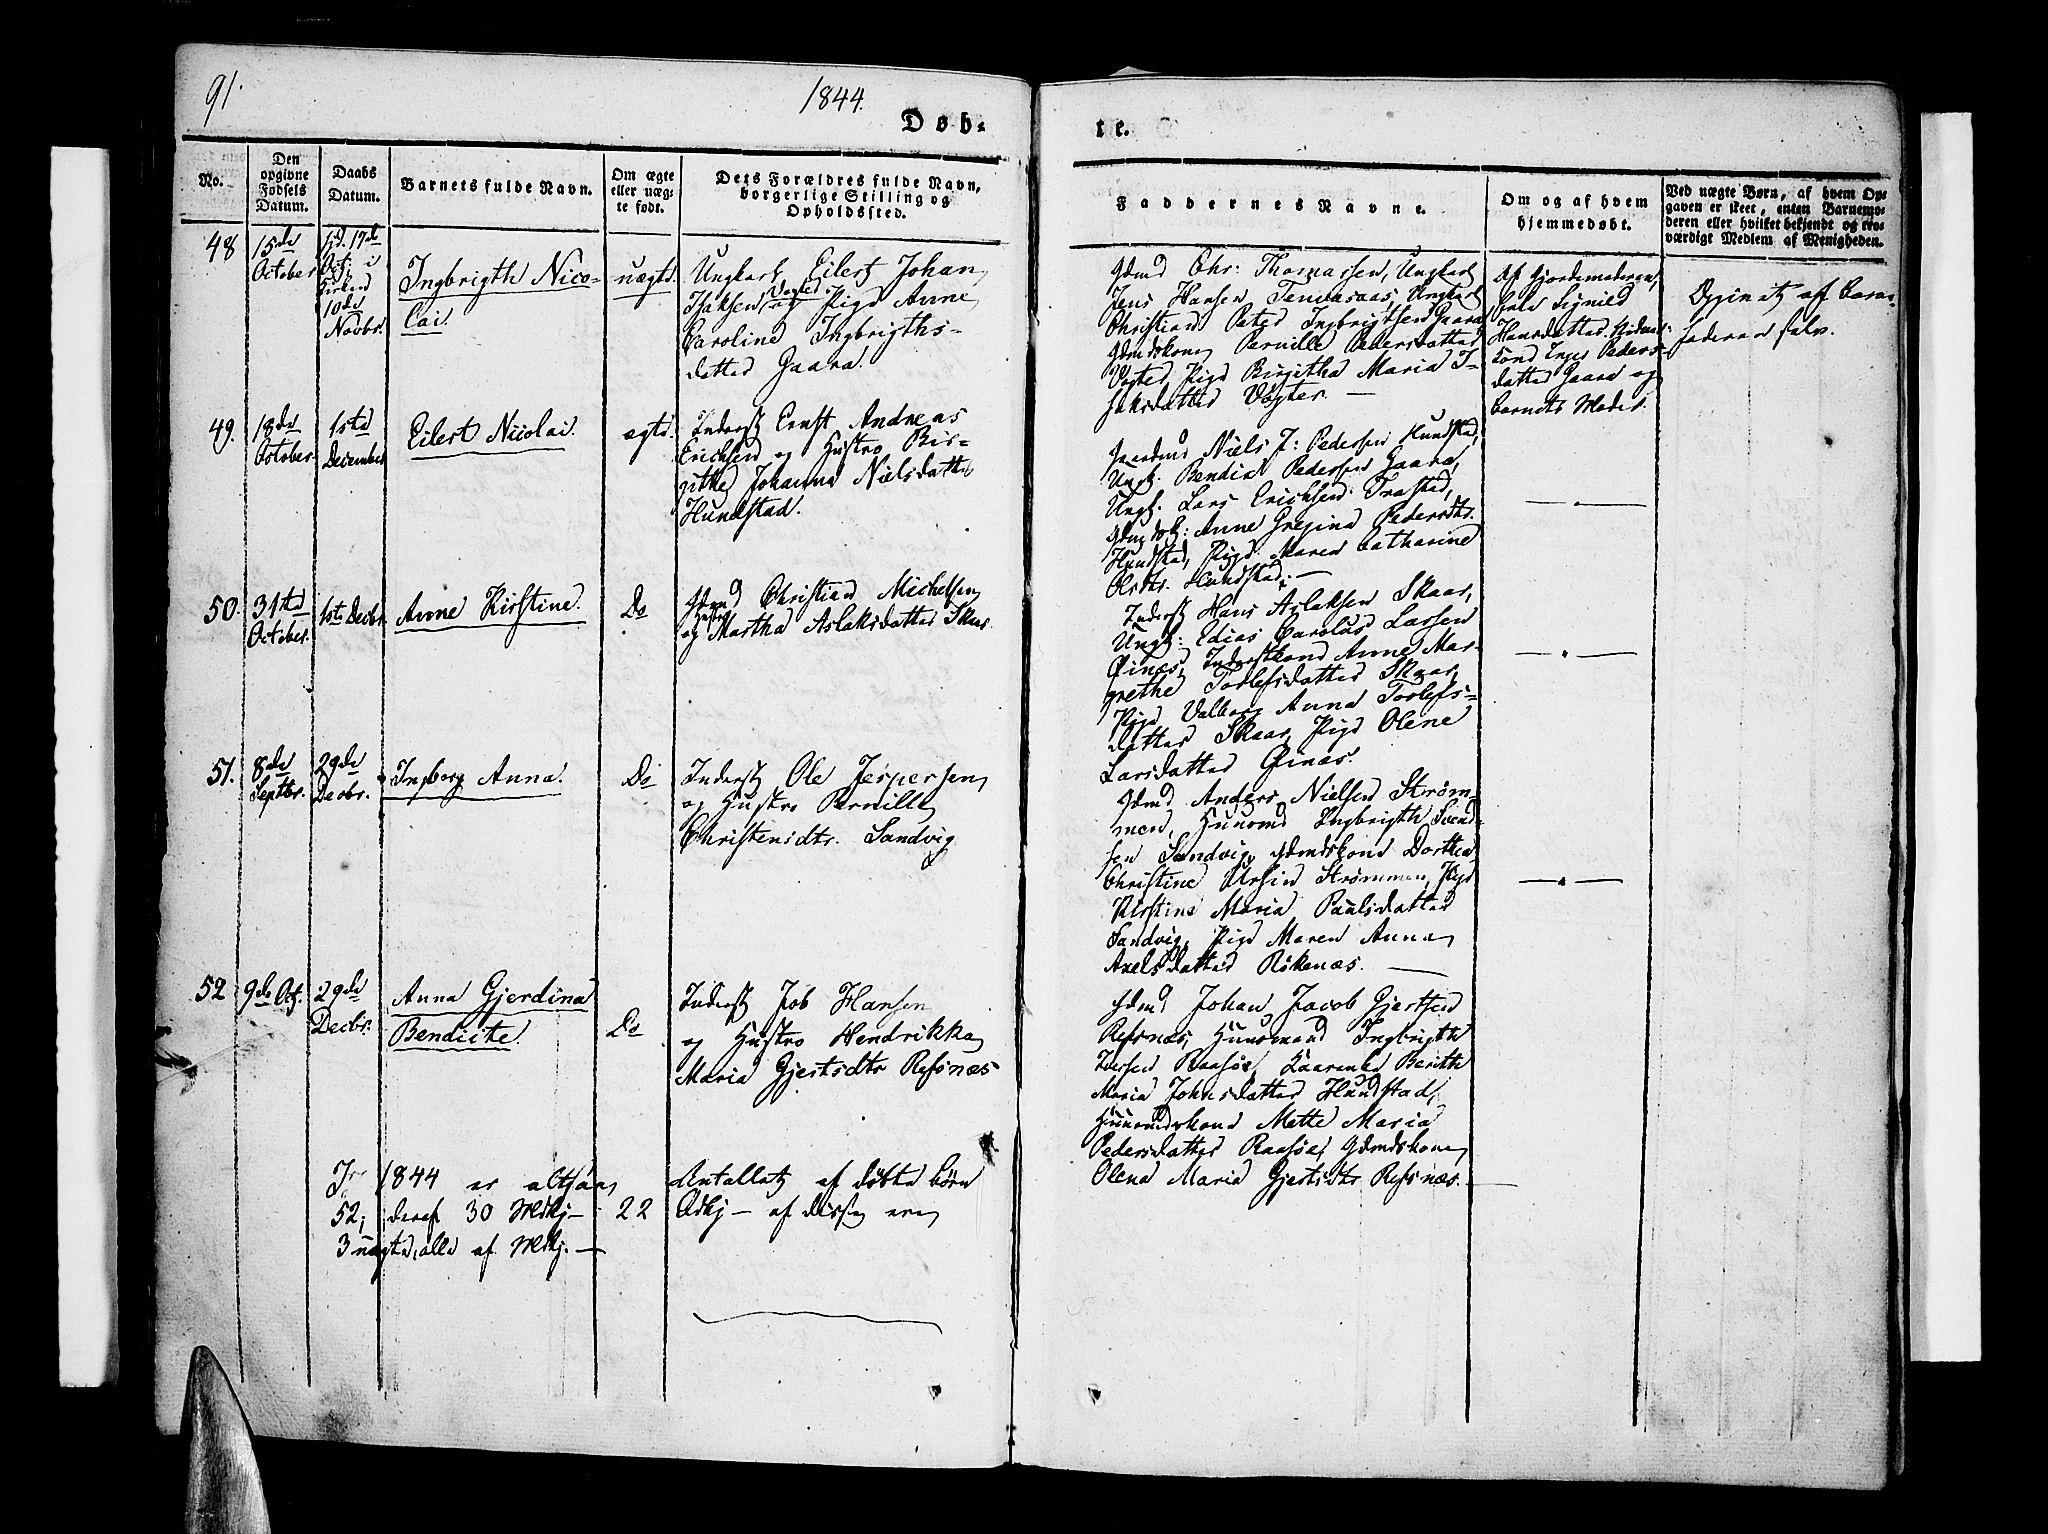 91.
1844.
Døb-
te.
No.
Den opgivne Fødsels Datum.
Daabs Datum.
Barnets fulde Navn.
Om ægte eller uægte født.
Dets Forældres fulde Navn, borgerlige Stilling og Opholdssted.
Faddernes Navne.
Om og af hvem hjemmedøbt.
Ved uægte Børn, af hvem Opgaven er skeet, enten Barnemoderen eller hvilket bekjendt og troværdigt Medlem af Menigheden.
48
15de
October
hjd. 17de
Oct. i
Kirken
10de
Novbr.
Ingbrigth Nico-
lai.
uægte
Ungkarl Eilert Johan
Isaksen Vogter og Pige Anne
Caroline Ingbrigths-
datter Gaara.
Gdmd Chr: Thomassen, Ungkarl
Jens Hansen Ungkarl
Christian Peter Ingbrigtsen Gaara
Gdmdskone Pernille Pedersdatter
Vogter, Pige Birgitha Maria I-
saksdatter Vogter. —
Af Gjordemoderen,
Hansdatter,
kone Inger Peders-
datter Gaara og
barnets Moder.
Opgivet af Barne-
faderen selv.
49.
18de
October
1ste
December
Eilert Nicolai.
ægte
Inderst Ernst Andreas
Erichsen og Hustro Bir-
gitte Johanna Nielsdatter
Hundstad.
Gaardmd Niels J: Pedersen Hundstad,
Ungk. Bendix Pedersen Gaara,
Ungk. Lars Erichsen Trastad,
Gdmdsk: Anne Gregina Pedersdtr.
Hundstad, Pige Maren Catharine
Olsdtr. Hundstad. —
50.
31te
October
1ste Decbr.
Anne Kirstine.
Do
Gdmd Christian Michelsen
og Hustro Martha Aslaksdatter Skaar.
Inderst Hans Aslaksen Skaar,
Ungk: Edias Carolus Larsen
Qinæs, Inderstkone Anne Mar-
grethe Torlefsdatter Skaar,
Pige Valborg Anna Torlefs-
datter Skaar, Pige Olene
Larsdatter Qinæs.
51.
8de
Septbr.
29de
Decbr.
Ingborg Anna.
Do
Inderst Ole Jespersen
og Hustro Pernille
Christensdtr. Sandvig
Gdmd Anders Nielsen Strøm-
men, Huusmd Ingbrigth Svend-
sen Sandvig, Gdmdskone Dorthea
Christine Ursin Strømmen, Pige
Kirstine Maria Paulsdatter
Sandvig, Pige Maren Anna
Axelsdatter Rökenæs. —
52
9de Oct.
29de
Decbr.
Anna Gjerdina
Bendicte.
Do
Inderst Job Hansen
og Hustro Hendrikka
Maria Gjertsdtr Refsnæs
Gdmd Johan Jacob Gjertsen
Refsnæs, Huusmand Ingbrigth
Iversen Raasöe, Kaarenke Berith
Maria Johnsdatter Hundstad,
Huusmdskone Mette Maria
Pedersdatter Raasöe, Gdmdskone
Olena Maria Gjertsdtr Refsnæs. —
I 1844 er altsaa Antallet af døbte børn
52, deraf 30 Mdkj — 22 Qdkj — af disse ere
3 uægte, alle af Mdkj. —